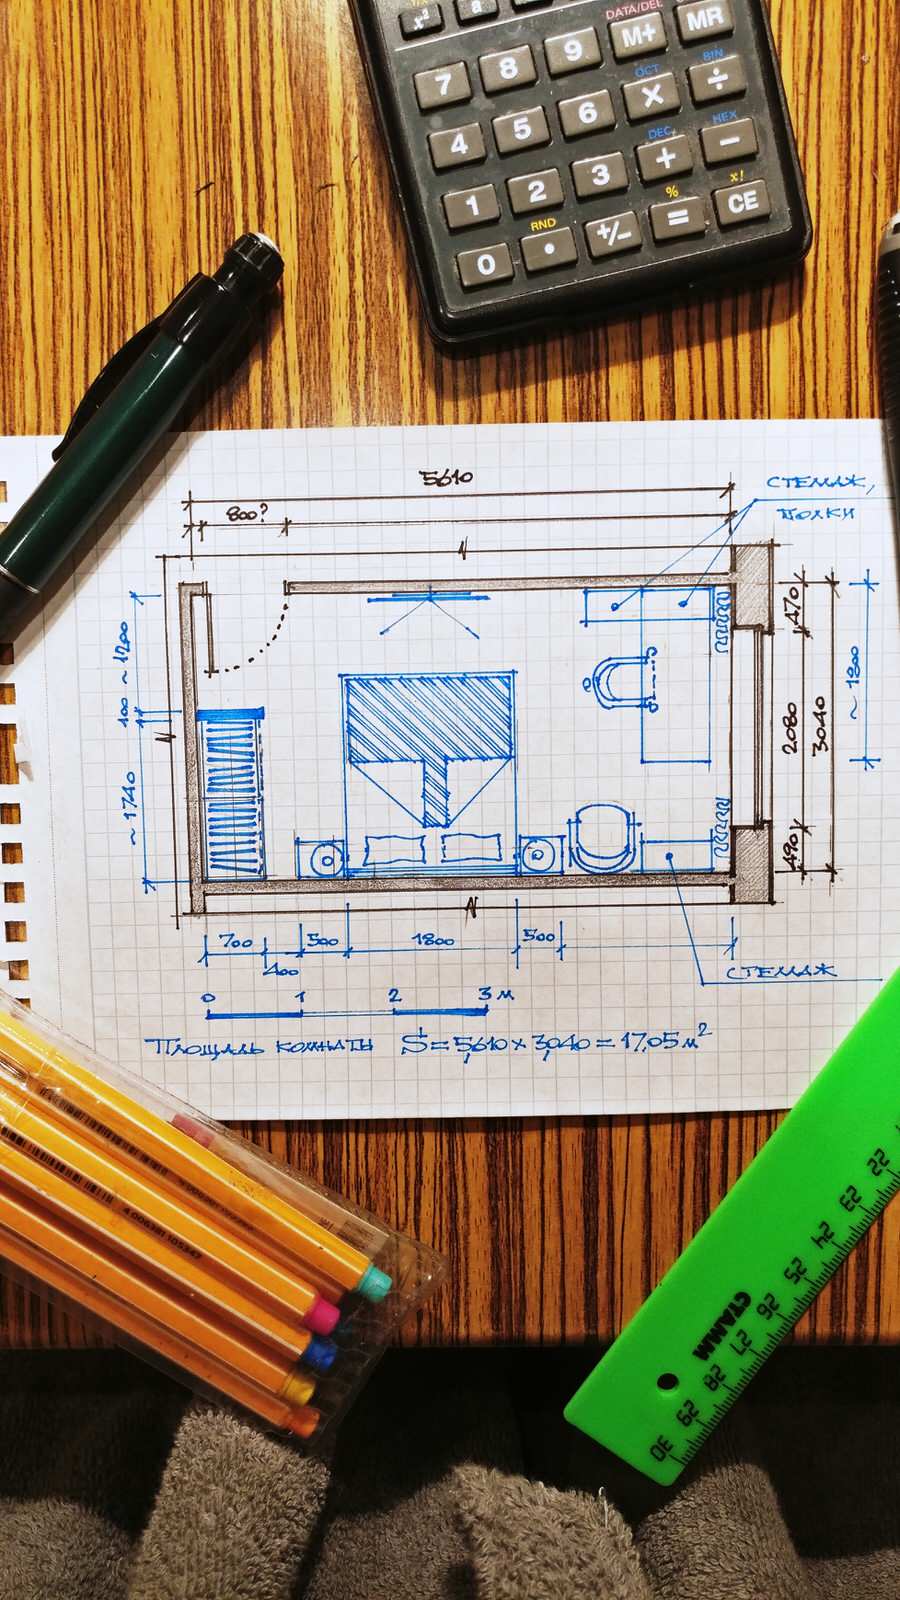 x² a
DATA/DEL
7 8 9 M+ MR
OCT BIN
4 5 6 × ÷
DEC HEX
1 2 3 + −
RND % x!
0 • +/− = CE
5610
800?
СТЕЛАЖ,
ПОЛКИ
470
2080
490
3040
~ 1800
100 ~ 1200
~ 1740
700
400
500
1800
500
СТЕЛАЖ
0 1 2 3 м
ПЛОЩАДЬ КОМНАТЫ S = 5,610 × 3,040 = 17,05 м²
СТАММ
22 23 24 25 26 27 28 29 30